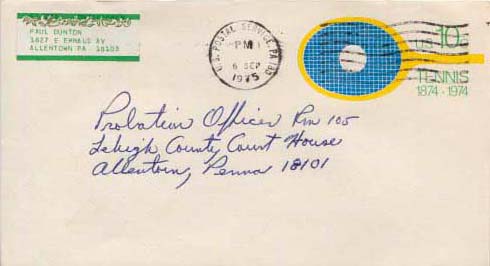 PAUL DUNTON
1827 E EMMAUS AV
ALLENTOWN PA 18103
U.S. POSTAL SERVICE, PA
PM
6 SEP
1975
US 10c
TENNIS
1874-1974
Probation Officer Rm 105
Lehigh County Court House
Allentown, Penna 18101